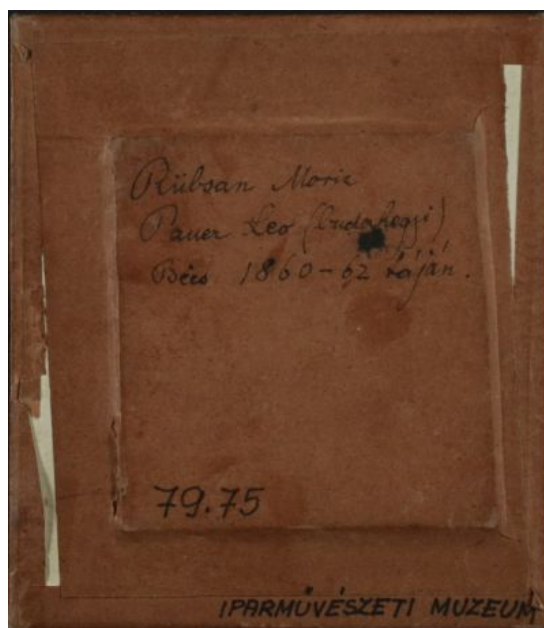 Rübsan Moric
Pauer Leo (Budahegyi)
Bécs 1860-62 táján.
79.75
IPARMŰVÉSZETI MUZEUM